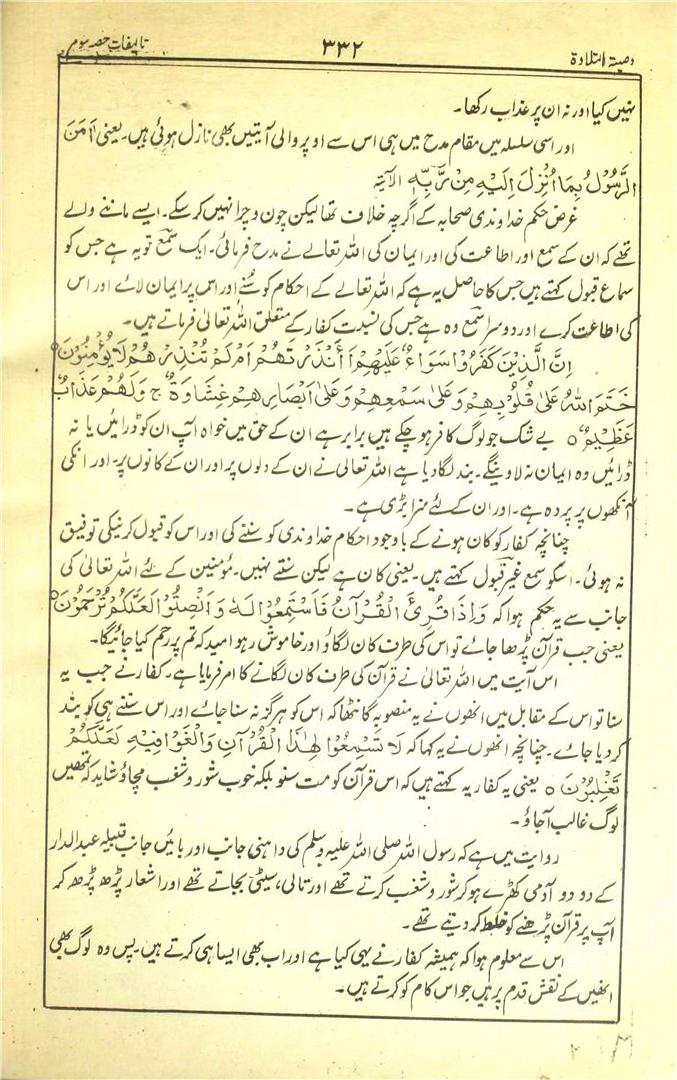 وصیۃ التلاوۃ ۳۳۲ تالیفات حصہ سوم
نہیں کیا اور نہ ان پر عذاب رکھا۔
اور اسی سلسلہ میں مقام مدح میں ہی اس سے اوپر والی آیتیں بھی نازل ہوئی ہیں۔ یعنی اٰمَنَ
الرَّسُوْلُ بِمَا اُنْزِلَ اِلَیْهِ مِنْ رَّبِّهٖ الآیۃ
غرض حکم خداوندی صحابہ کے اگرچہ خلاف تھا لیکن چون و چرا نہیں کر سکے۔ ایسے ماننے والے
تھے کہ ان کے سمع اور اطاعت کی اور ایمان کی اللہ تعالے نے مدح فرمائی۔ ایک سمع تو یہ ہے جس کو
سماع قبول کہتے ہیں جس کا حاصل یہ ہے کہ اللہ تعالے کے احکام کو سُنے اور اس پر ایمان لائے اور اس
کی اطاعت کرے اور دوسرا سمع وہ ہے جس کی نسبت کفار کے متعلق اللہ تعالیٰ فرماتے ہیں۔
اِنَّ الَّذِیْنَ کَفَرُوْا سَوَاءٌ عَلَیْهِمْ أَأَنْذَرْتَهُمْ اَمْ لَمْ تُنْذِرْهُمْ لَا یُؤْمِنُوْنَ ۝
خَتَمَ اللهُ عَلٰی قُلُوْبِهِمْ وَعَلٰی سَمْعِهِمْ وَعَلٰی اَبْصَارِهِمْ غِشَاوَةٌ ج وَلَهُمْ عَذَابٌ
عَظِیْمٌ ۝ بے شک جو لوگ کافر ہو چکے ہیں برابر ہے ان کے حق میں خواہ آپ ان کو ڈرائیں یا نہ
ڈرائیں وہ ایمان نہ لاوینگے۔ بند لگا دیا ہے اللہ تعالیٰ نے ان کے دلوں پر اور ان کے کانوں پر۔ اور انکی
آنکھوں پر پردہ ہے۔ اور ان کے لئے سزا بڑی ہے۔
چنانچہ کفار کو کان ہونے کے باوجود احکام خداوندی کو سننے کی اور اس کو قبول کرنیکی توفیق
نہ ہوئی۔ اسکو سمع غیر قبول کہتے ہیں۔ یعنی کان ہے لیکن سنتے نہیں۔ مؤمنین کے لئے اللہ تعالیٰ کی
جانب سے یہ حکم ہوا کہ وَاِذَا قُرِئَ الْقُرْآنُ فَاسْتَمِعُوْا لَهٗ وَاَنْصِتُوْا لَعَلَّکُمْ تُرْحَمُوْنَ ۝
یعنی جب قرآن پڑھا جائے تو اس کی طرف کان لگاؤ اور خاموش رہو امید کہ تم پر رحم کیا جائیگا۔
اس آیت میں اللہ تعالیٰ نے قرآن کی طرف کان لگانے کا امر فرمایا ہے۔ کفار نے جب یہ
سنا تو اس کے مقابل میں انھوں نے یہ منصوبہ گانٹھا کہ اس کو ہرگز نہ سنا جائے اور اس سننے ہی کو بند
کر دیا جائے۔ چنانچہ انھوں نے یہ کہا کہ لَا تَسْمَعُوْا لِهٰذَا الْقُرْآنِ وَالْغَوْا فِیْهِ لَعَلَّکُمْ
تَغْلِبُوْنَ ۝ یعنی یہ کفار یہ کہتے ہیں کہ اس قرآن کو مت سنو بلکہ خوب شور و شغب مچاؤ شاید کہ تمھیں
لوگ غالب آ جاؤ۔
روایت میں ہے کہ رسول اللہ صلی اللہ علیہ وسلم کی داہنی جانب اور بائیں جانب قبیلہ عبد الدار
کے دو دو آدمی کھڑے ہو کر شور و شغب کرتے تھے اور تالی، سیٹی بجاتے تھے اور اشعار پڑھ پڑھ کر
آپ پر قرآن پڑھنے کو خلط کر دیتے تھے۔
اس سے معلوم ہوا کہ ہمیشہ کفار نے یہی کیا ہے اور اب بھی ایسا ہی کرتے ہیں۔ پس وہ لوگ بھی
انھیں کے نقش قدم پر ہیں جو اس کام کو کرتے ہیں۔